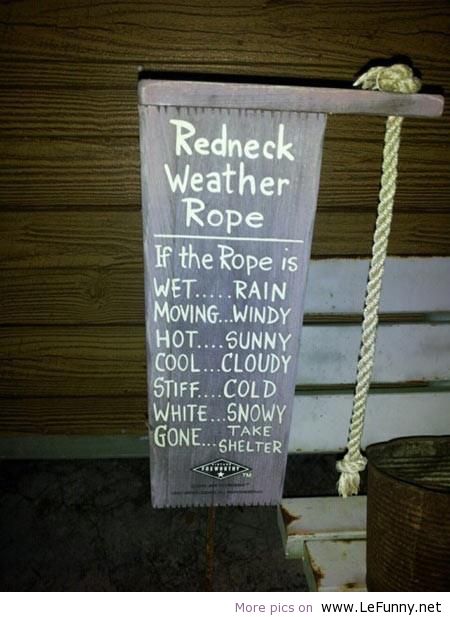 Redneck
Weather
Rope
If the Rope is
WET.....RAIN
MOVING...WINDY
HOT....SUNNY
COOL...CLOUDY
STIFF....COLD
WHITE...SNOWY
GONE...TAKE SHELTER
FOXWORTHY
TM
More pics on www.LeFunny.net